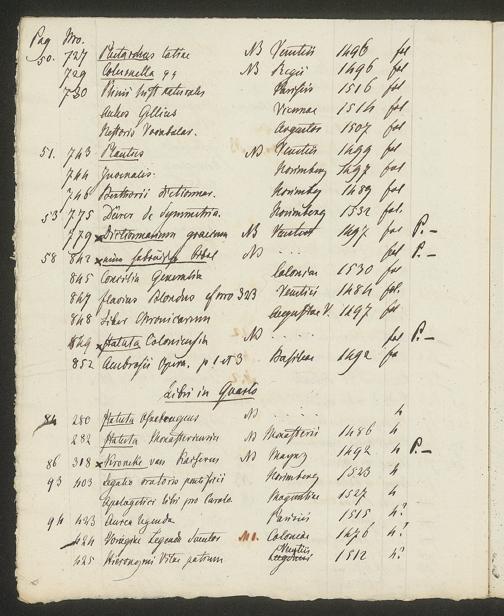 Pag Nro.
50. 727 Plutarchus latine NB Venetiis 1496 fol
729 Columella NB Regii 1496 fol
730 Plinii hist naturalis Parisiis 1516 fol
Aulus Gellius Viennae 1514 fol
Vocabular. Augustae 1507 fol
51. 743 Plautus NB Venetiis 1499 fol
744 Juvenalis Norimberg 1497 fol
746 dictionar. Norimberg 1489 fol
53 775 Dürer de Symmetria. Norimberg 1532 fol.
779 x Dictionarium graecum NB Venetiis 1497 fol P.-
58 842 x Bibel NB . . . fol P.-
845 Concilia Generalia Coloniae 1530 fol
847 Flavius Blondus 323 Venetiis 1484 fol
848 Liber Chronicarum Augustae V. 1497 fol
849 x Statuta Coloniensia NB . . . . fol P.-
852 Ambrosii Opera. p 1 et 3 Basileae 1492 fo
Libri in Quarto
84 280 Statuta NB . . . . . 4
282 Statuta Monasteriensia NB Monasterii 1486 4
86 318 x Kronike van NB Maynz 1492 4 P.-
93 403 Legatio oratorio pontificii Norimberg 1523 4
Apologetici libri pro Carolo Maguntiae 1527 4
94 423 Aurea legenda Parisiis 1515 4?
424 Voragine Legenda Sanctor NB. Coloniae 1476 4?
425 Hieronymi Vitae patrum Venetiis 1512 4?